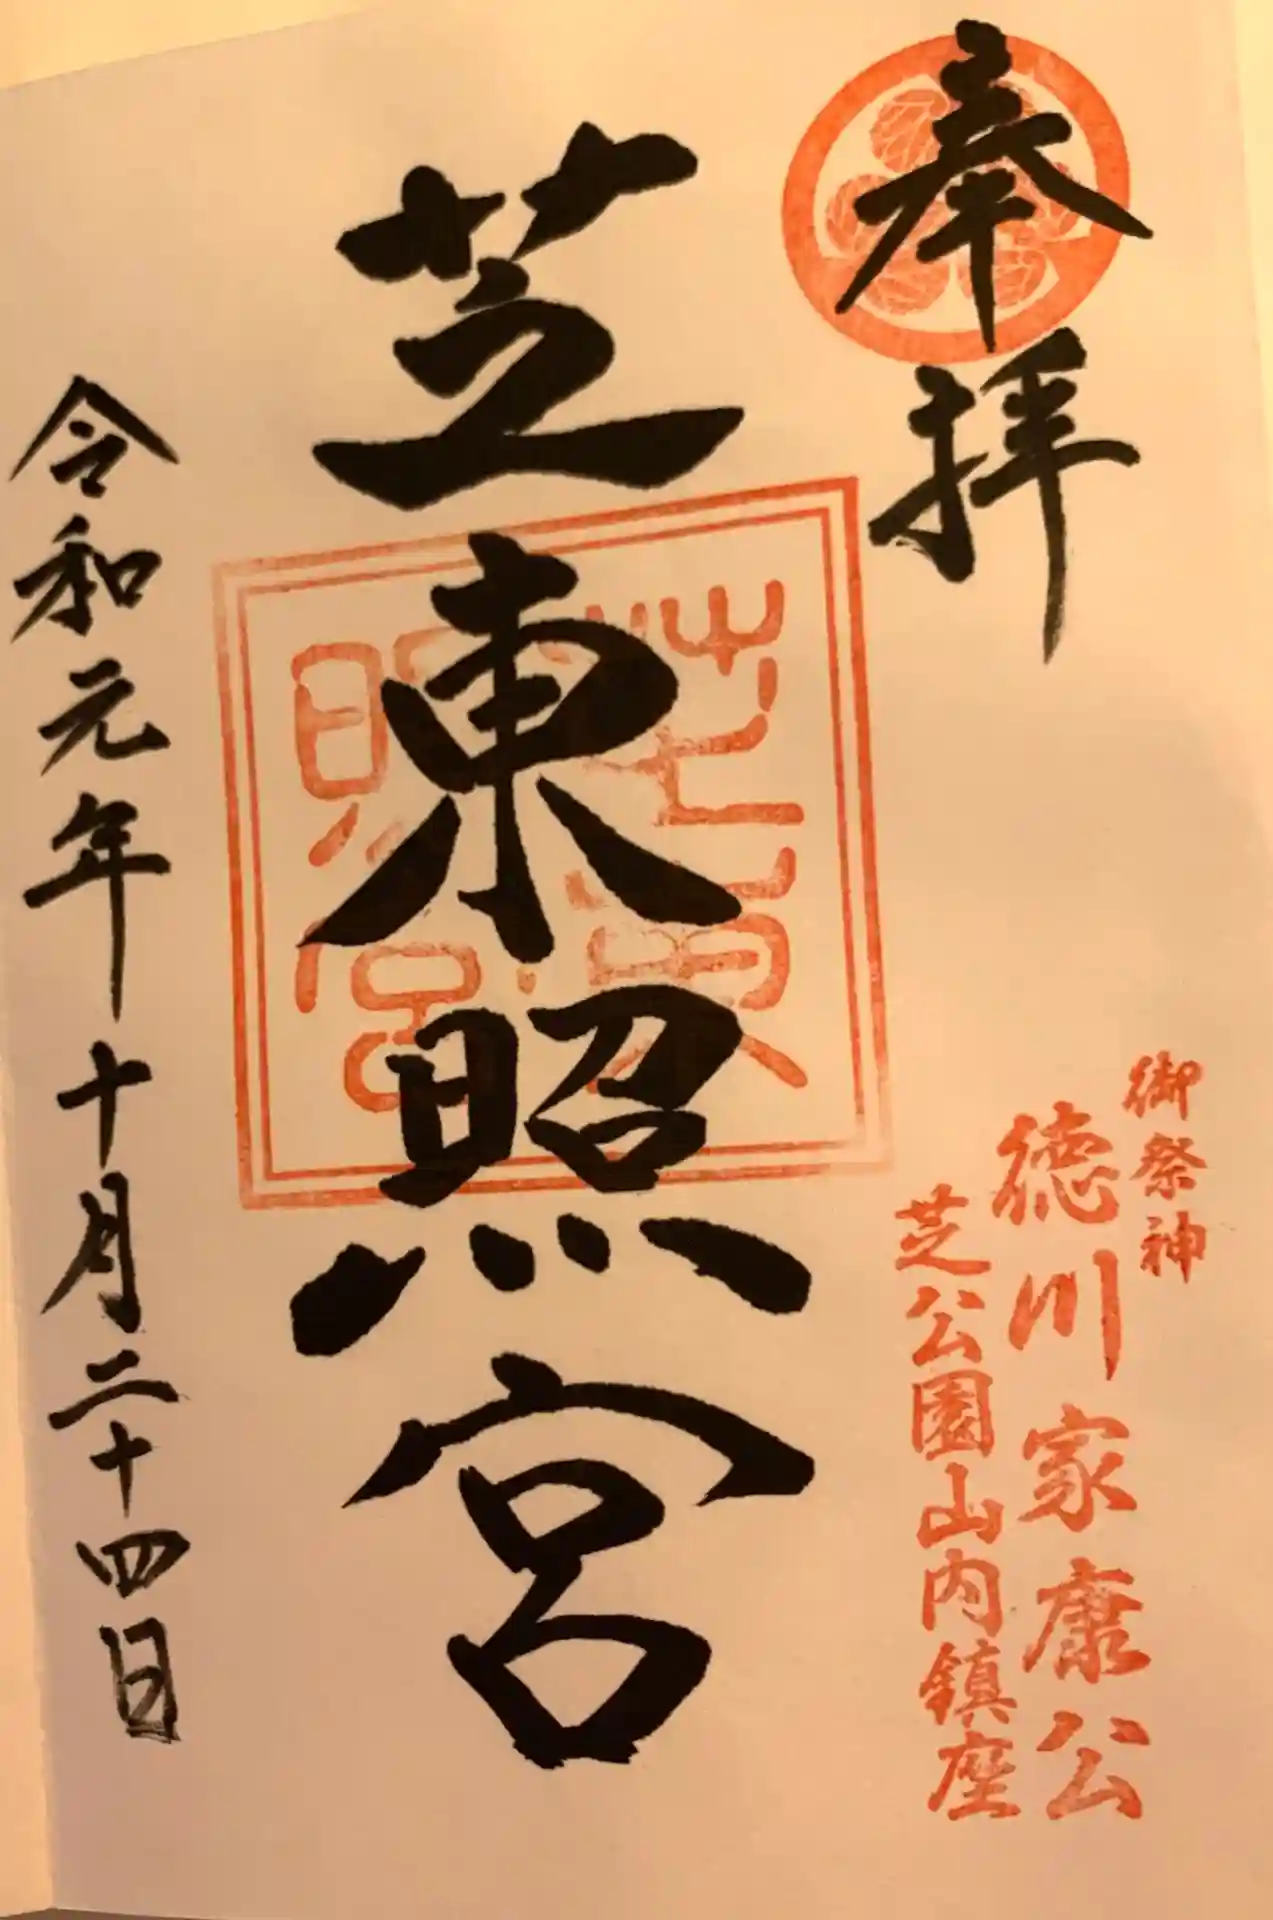 奉拝
御祭神
徳川家康公
芝公園山内鎮座
芝東照宮
芝東
照宮
令和元年十月二十四日